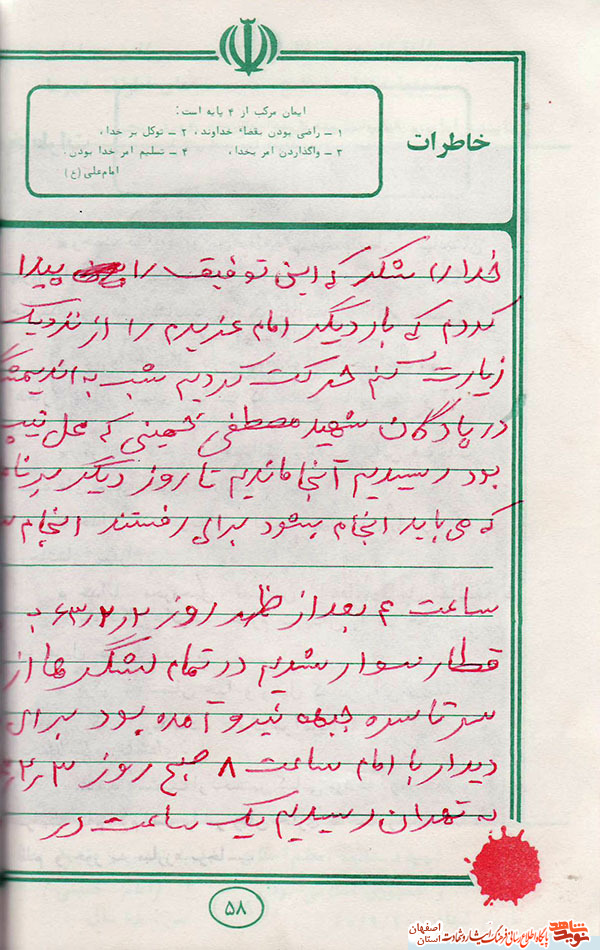 خاطرات
ایمان مرکب از ۴ پایه است:
۱ - راضی بودن بقضاء خداوند، ۲ - توکل بر خدا،
۳ - واگذاردن امر بخدا، ۴ - تسلیم امر خدا بودن.
امام علی (ع)
خدا را شکر که این توفیق را پیدا
کردم که بار دیگر امام عزیزم را از نزدیک
زیارت کنم حرکت کردیم شب به اندیمشک
در پادگان شهید مصطفی خمینی که محل تیپ
بود رسیدیم آنجا ماندیم تا روز دیگر
که می باید انجام بشود برای رفتند انجام
ساعت ۴ بعد از ظهر روز ۶۳٫۲٫۲ به
قطار سوار شدیم در تمام لشگرها از
سرتاسره جبهه نیرو آمده بود برای
دیدار با امام ساعت ۸ صبح روز ۳٫۲٫
به تهران رسیدیم یک ساعت در
۵۸
نوید شاهد
پایگاه اطلاع رسانی فرهنگ ایثار و شهادت
استان اصفهان